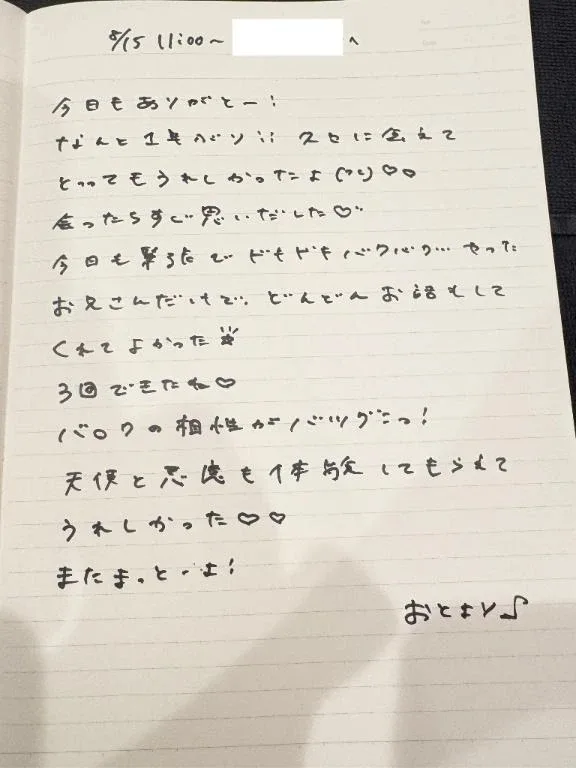 8/15 11:00〜 へ
今日もありがとー!
なんと1年ぶり!! 久々に会えて
とってもうれしかったよ ♡♡
会ったらすぐ思いだした♡
今日も緊張でドキドキバクバク… やった
お兄さんだけど、どんどんお話もして
くれてよかった
3回できたね♡
バロクの相性がバツグンっ!
天使と悪魔も体験してもらえて
うれしかった♡♡
またまっとーよ!
おとより♪